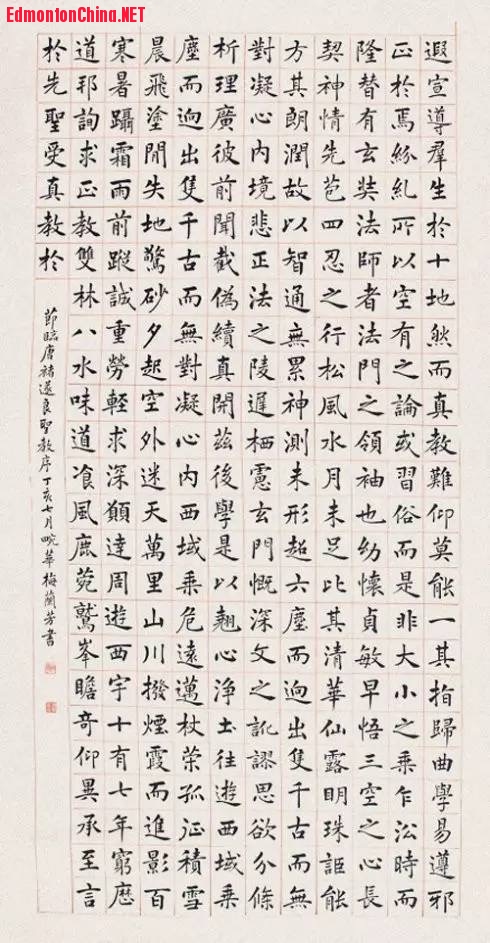 EdmontonChina.NET
遐宣導羣生於十地然而真教難仰莫能一其指歸曲學易遵邪
正於焉紛糺所以空有之論或習俗而是非大小之乘乍沿時而
隆替有玄奘法師者法門之領袖也幼懷貞敏早悟三空之心長
契神情先苞四忍之行松風水月未足比其清華仙露明珠詎能
方其朗潤故以智通無累神測未形超六塵而迥出隻千古而無
對凝心內境悲正法之陵遲栖慮玄門慨深文之訛謬思欲分條
析理廣彼前聞截偽續真開茲後學是以翹心淨土往遊西域乘
塵而迥出隻千古而無對凝心內西域乘危遠邁杖榮孤征積雪
晨飛塗閒失地驚砂夕起空外迷天萬里山川撥煙霞而進影百
寒暑躡霜雨前蹤誠重勞輕求深願達周遊西宇十有七年窮歷
道邦詢求正教雙林八水味道飡風鹿菀鷲峯瞻奇仰異承至言
於先聖受真教於
節臨唐褚遂良聖教序丁亥七月畹華梅蘭芳書